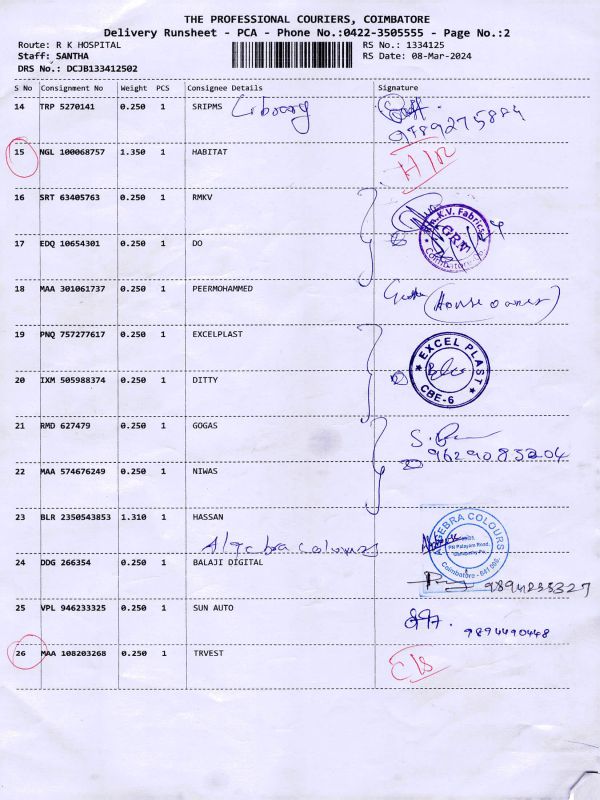 THE PROFESSIONAL COURIERS, COIMBATORE
Delivery Runsheet - PCA - Phone No.:0422-3505555 - Page No.:2
Route: R K HOSPITAL
RS No.: 1334125
Staff: SANTHA
RS Date: 08-Mar-2024
DRS No.: DCJB133412502
S No Consignment No Weight PCS Consignee Details Signature
14 TRP 5270141 0.250 1 SRIPMS Library
15 NGL 100068757 1.350 1 HABITAT
16 SRT 63405763 0.250 1 RMKV
17 EDQ 10654301 0.250 1 DO
K.V. Fabrics
GRN
Coimbatore
18 MAA 301061737 0.250 1 PEERMOHAMMED (House owner)
19 PNQ 757277617 0.250 1 EXCELPLAST
EXCEL PLAST
CBE-6
20 IXM 505988374 0.250 1 DITTY
21 RMD 627479 0.250 1 GOGAS
9629083204
22 MAA 574676249 0.250 1 NIWAS
23 BLR 2350543853 1.310 1 HASSAN
Algebra colours
ALGEBRA COLOURS
PN Palayam Road,
Ganapathy Po,
Coimbatore - 641 006.
24 DDG 266354 0.250 1 BALAJI DIGITAL
25 VPL 946233325 0.250 1 SUN AUTO
9894490448
26 MAA 108203268 0.250 1 TRVEST